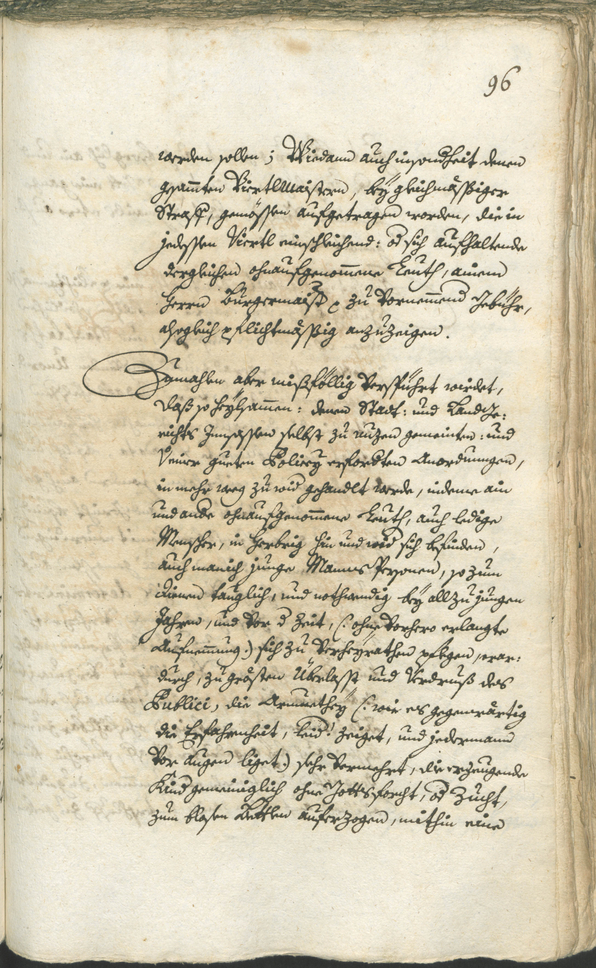 96
werden sollen; Wie dann auch insonderheit denen
gesammten Viertlmaistern, bey gleichmässiger
Straff, gemössen aufgetragen worden, die in
jedessen Viertl einschleichend: od sich aufhaltende
dergleichen ohnaufgenommene Leuth, ainem
Herrn Burgermaister zu vornemend Gebühr,
alsogleich pflichtmässig anzuzeigen.
Zumahlen aber mißfällig verspührt wirdet,
daß so heylsammen: denen Statt: und Landtge:
richts Innsassen selbst zu nuzen gemeinten: und
seiner gueten Policey erforderten Anordnungen,
in mehr weg zuwid gehandlt werde, indeme ain
und andere ohnaufgenommene Leuth, auch ledige
Menscher, in Herberg hin und wid sich befinden,
auch manich junge Manns Persohnen, so zum
dienen tauglich, und nothwendig bey allzu jungen
Jahren, und vor d Zeit, (: ohne vorhero erlangte
Aufnemmung :) sich zu verheyrathen pflegen, war:
durch, zu grösten Überlasst und Verdruß des
Publici, die Armuethey (: wie es gegenwärtig
die Erfahrenheit, leid zeiget, und jedermann
vor Augen liget :) sehr vermehrt, die erzeugende
Kind gemainiglich ohne Gottsforcht, od Zucht,
zum blosen Bettlen auferzogen, mithin eine